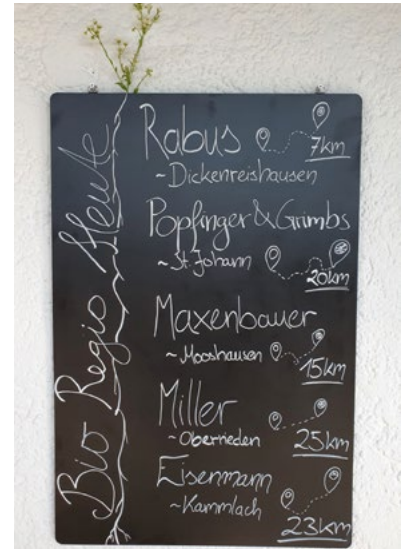 Bio Regio Heute
Rabus 7km
~Dickenreishausen
Popfinger & Grimbs
~St. Johann 20km
Maxenbauer
~Mooshausen 15km
Miller
~Oberrieden 25km
Eisenmann
~Kammlach 23km